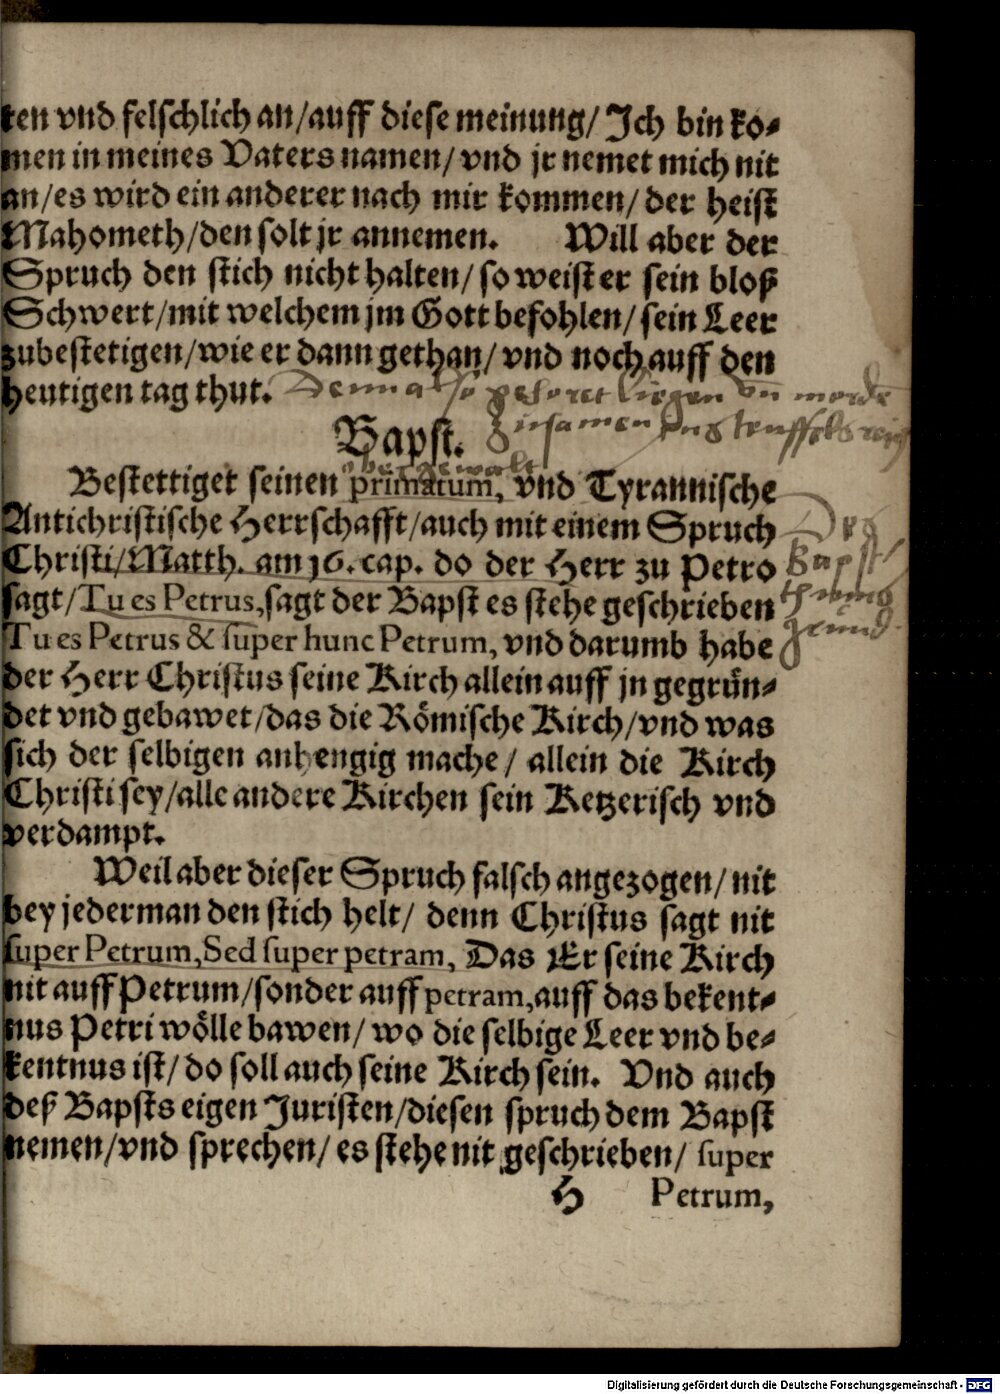 ten vnd felschlich an/auff diese meinung/Ich bin ko⸗
men in meines Vaters namen/vnd jr nemet mich nit
an/es wird ein anderer nach mir kommen/der heist
Mahometh/den solt jr annemen. Will aber der
Spruch den stich nicht halten/so weist er sein bloß
Schwert/mit welchem jm Gott befohlen/sein Leer
zubestetigen/wie er dann gethan/vnd noch auff den
heutigen tag thut. Denn also gehoret liegen vn morde
zusamen ins teuffels reich
Bapst.
obergewalt
Bestettiget seinen primatum, vnd Tyrannische
Antichristische Herrschafft/auch mit einem Spruch
Christi/Matth. am 16. cap. do der Herr zu Petro
sagt/Tu es Petrus,sagt der Bapst es stehe geschrieben
Tu es Petrus & super hunc Petrum, vnd darumb habe
Des
Bapst
thumbs
grund
der Herr Christus seine Kirch allein auff jn gegrün⸗
det vnd gebawet/das die Römische Kirch/vnd was
sich der selbigen anhengig mache/ allein die Kirch
Christi sey/alle andere Kirchen sein Ketzerisch vnd
verdampt.
Weil aber dieser Spruch falsch angezogen/nit
bey jederman den stich helt/ denn Christus sagt nit
super Petrum,Sed super petram, Das Er seine Kirch
nit auff Petrum/sonder auff petram,auff das bekent⸗
nus Petri wölle bawen/ wo die selbige Leer vnd be⸗
kentnus ist/ do soll auch seine Kirch sein. Vnd auch
deß Bapsts eigen Juristen/diesen spruch dem Bapst
nemen/vnd sprechen/ es stehe nit geschrieben/ super
H Petrum,
Digitalisierung gefördert durch die Deutsche Forschungsgemeinschaft - DFG